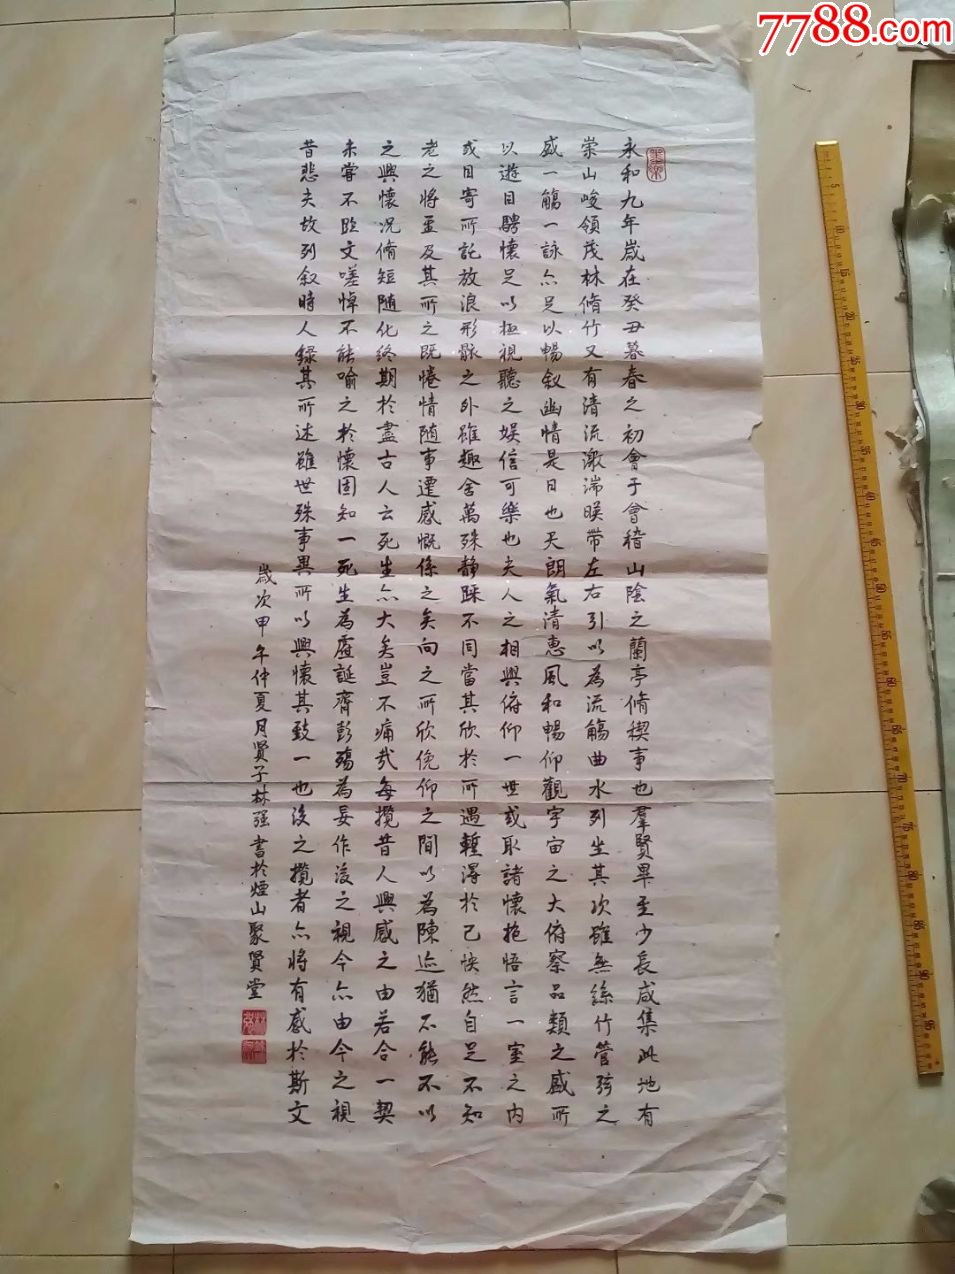 7788.com
永和九年歲在癸丑暮春之初會于會稽山陰之蘭亭脩稧事也羣賢畢至少長咸集此地有
崇山峻領茂林脩竹又有清流激湍暎帶左右引以為流觴曲水列坐其次雖無絲竹管弦之
盛一觴一詠亦足以暢敘幽情是日也天朗氣清惠風和暢仰觀宇宙之大俯察品類之盛所
以遊目騁懷足以極視聽之娛信可樂也夫人之相與俯仰一世或取諸懷抱悟言一室之內
或因寄所託放浪形骸之外雖趣舍萬殊靜躁不同當其欣於所遇蹔得於己快然自足不知
老之將至及其所之既惓情隨事遷感慨係之矣向之所欣俛仰之閒以為陳迹猶不能不以
之興懷況脩短隨化終期於盡古人云死生亦大矣豈不痛哉每攬昔人興感之由若合一契
未嘗不臨文嗟悼不能喻之於懷固知一死生為虛誕齊彭殤為妄作後之視今亦由今之視
昔悲夫故列敘時人錄其所述雖世殊事異所以興懷其致一也後之攬者亦將有感於斯文
歲次甲午仲夏月賢子林强書於煙山聚賢堂